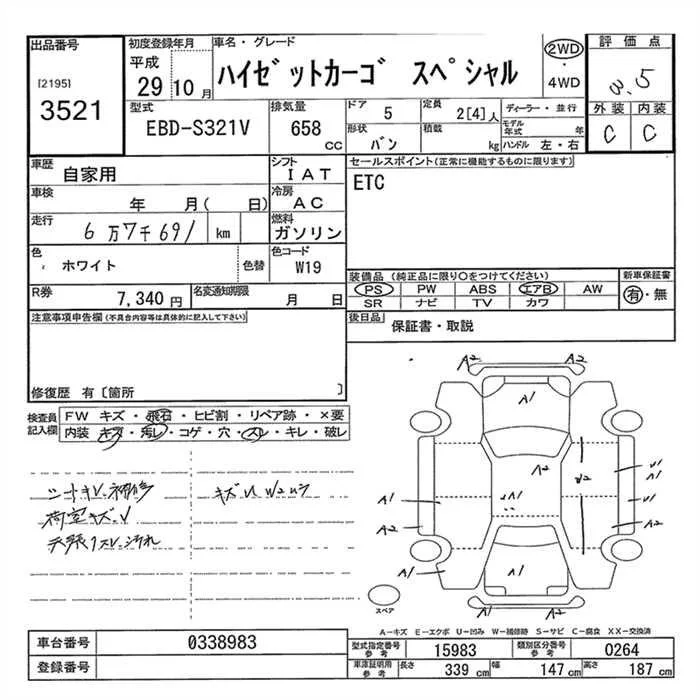 出品番号
[2195]
3521
初度登録年月
平成
29 10 月
車名・グレード
ハイゼットカーゴ スペシャル
2WD
・
4WD
評価点
3.5
外装 内装
C C
型式
EBD-S321V
排気量
658
CC
ドア
5
定員
2[4]人
ディーラー・並行
形状
バン
積載
kg
モデル年式
年
ハンドル 左・右
車歴
自家用
シフト
IAT
セールスポイント(正常に機能するものに限ります)
ETC
車検
年 月( 日)
冷房
AC
走行
6万7千691 km
燃料
ガソリン
色
ホワイト
色替
色コード
W19
装備品 (純正品に限り〇をつけてください)
新車保証書
PS PW ABS エアB AW
SR ナビ TV カワ
有・無
R券
7,340 円
名変通知期限
月 日
後日品
保証書・取説
注意事項申告欄(不具合内容等は具体的に記入して下さい)
修復歴 有〔箇所 〕
検査員記入欄
FW キズ・飛石・ヒビ割・リペア跡・×要
内装 キズ・汚レ・コゲ・穴・スレ・キレ・破レ
荷室キズ、U
A2 A2
A1
A2
W2
A1
A1
U1
A1
U1
A2
A2
A1
A1
A1
スペア
A2
A2
A-キズ E-エクボ U-凹み W-補修跡 S-サビ C-腐食 XX-交換済
車台番号
0338983
登録番号
型式指定番号
参考
15983
類別区分番号
参考
0264
車庫証明用
参考
長さ
339 cm
幅
147 cm
高さ
187 cm